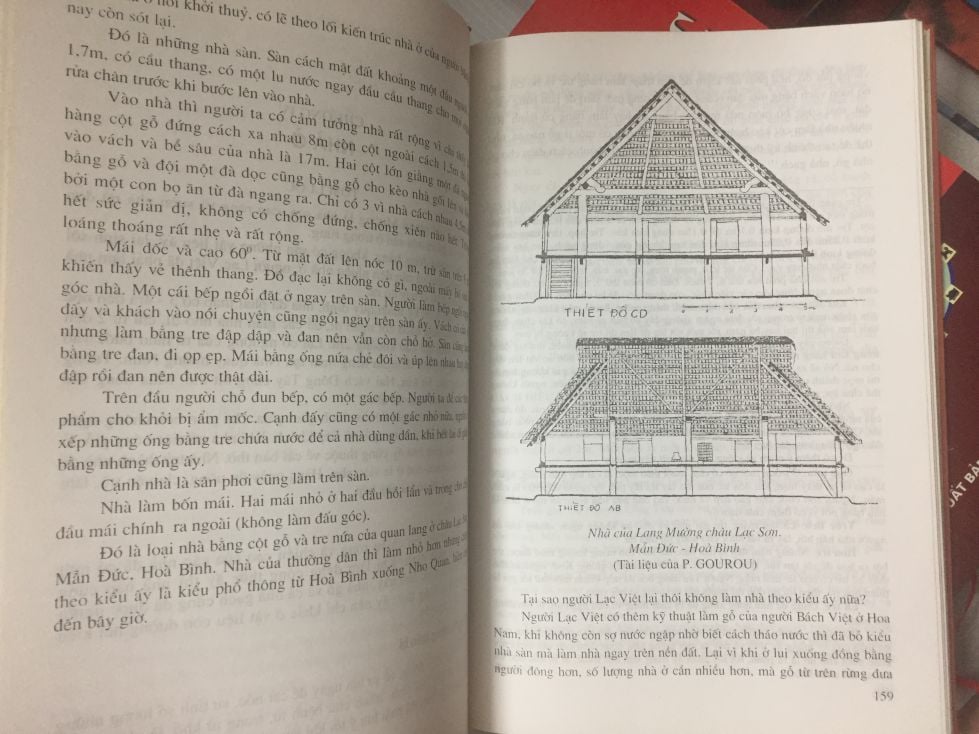 nơi khởi thuỷ, có lẽ theo lối kiến trúc nhà ở của người
nay còn sót lại.
Đó là những nhà sàn. Sàn cách mặt đất khoảng một đầu người
1,7m, có cầu thang, có một lu nước ngay đầu cầu thang cho mọi
rửa chân trước khi bước lên vào nhà.
Vào nhà thì người ta có cảm tưởng nhà rất rộng vì
hàng cột gỗ đứng cách xa nhau 8m còn cột ngoài cách 1,5m
vào vách và bề sâu của nhà là 17m. Hai cột lớn giằng một đà
bằng gỗ và đội một đà dọc cũng bằng gỗ cho kèo nhà gối lên
bởi một con bọ ăn từ đà ngang ra. Chỉ có 3 vì nhà cách nhau 4,5m
hết sức giản dị, không có chống đứng, chống xiên nào hết.
loáng thoáng rất nhẹ và rất rộng.
Mái dốc và cao 60⁰. Từ mặt đất lên nóc 10 m, trừ sàn trên
khiến thấy vẻ thênh thang. Đồ đạc lại không có gì, ngoài mấy
góc nhà. Một cái bếp ngồi đặt ở ngay trên sàn. Người làm bếp ngồi
đấy và khách vào nói chuyện cũng ngồi ngay trên sàn ấy. Vách
nhưng làm bằng tre đập dập và đan nên vẫn còn chỗ hở. Sàn cũng
bằng tre đan, đi ọp ẹp. Mái bằng ống nứa chẻ đôi và úp lên nhau
đập rồi đan nên được thật dài.
Trên đầu người chỗ đun bếp, có một gác bếp. Người ta để các
phẩm cho khỏi bị ẩm mốc. Cạnh đấy cũng có một gác nhỏ nữa,
xếp những ống bằng tre chứa nước để cả nhà dùng dần, khi hết
bằng những ống ấy.
Cạnh nhà là sân phơi cũng làm trên sàn.
Nhà làm bốn mái. Hai mái nhỏ ở hai đầu hồi lẩn vào trong
đầu mái chính ra ngoài (không làm đấu góc).
Đó là loại nhà bằng cột gỗ và tre nứa của quan lang ở châu Lạc
Mẫn Đức, Hoà Bình. Nhà của thường dân thì làm nhỏ hơn nhưng
theo kiểu ấy là kiểu phổ thông từ Hoà Bình xuống Nho Quan,
đến bây giờ.
THIẾT ĐỒ CD
THIẾT ĐỒ AB
Nhà của Lang Mường châu Lạc Sơn.
Mẫn Đức - Hoà Bình
(Tài liệu của P. GOUROU)
Tại sao người Lạc Việt lại thôi không làm nhà theo kiểu ấy nữa?
Người Lạc Việt có thêm kỹ thuật làm gỗ của người Bách Việt ở Hoa
Nam, khi không còn sợ nước ngập nhờ biết cách tháo nước thì đã bỏ kiểu
nhà sàn mà làm nhà ngay trên nền đất. Lại vì khi ở lui xuống đồng bằng
người đông hơn, số lượng nhà ở cần nhiều hơn, mà gỗ từ trên rừng đưa
159